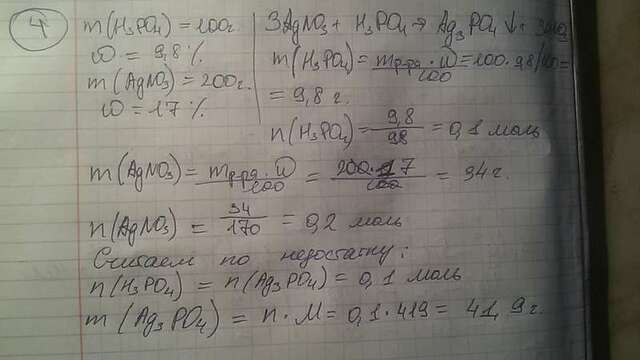 4
m(H₃PO₄) = 100г
ω = 9,8 %
m(AgNO₃) = 200г.
ω = 17 %
3AgNO₃ + H₃PO₄ → Ag₃PO₄ ↓ +
m(H₃PO₄) = mр-ра · ω / 100 = 100 · 9,8 / 100 =
= 9,8 г.
n(H₃PO₄) = 9,8 / 98 = 0,1 моль
m(AgNO₃) = mр-ра · ω / 100 = 200 · 17 / 100 = 34г.
n(AgNO₃) = 34 / 170 = 0,2 моль
Считаем по недостатку:
n(H₃PO₄) = n(Ag₃PO₄) = 0,1 моль
m(Ag₃PO₄) = n · M = 0,1 · 419 = 41,9г.